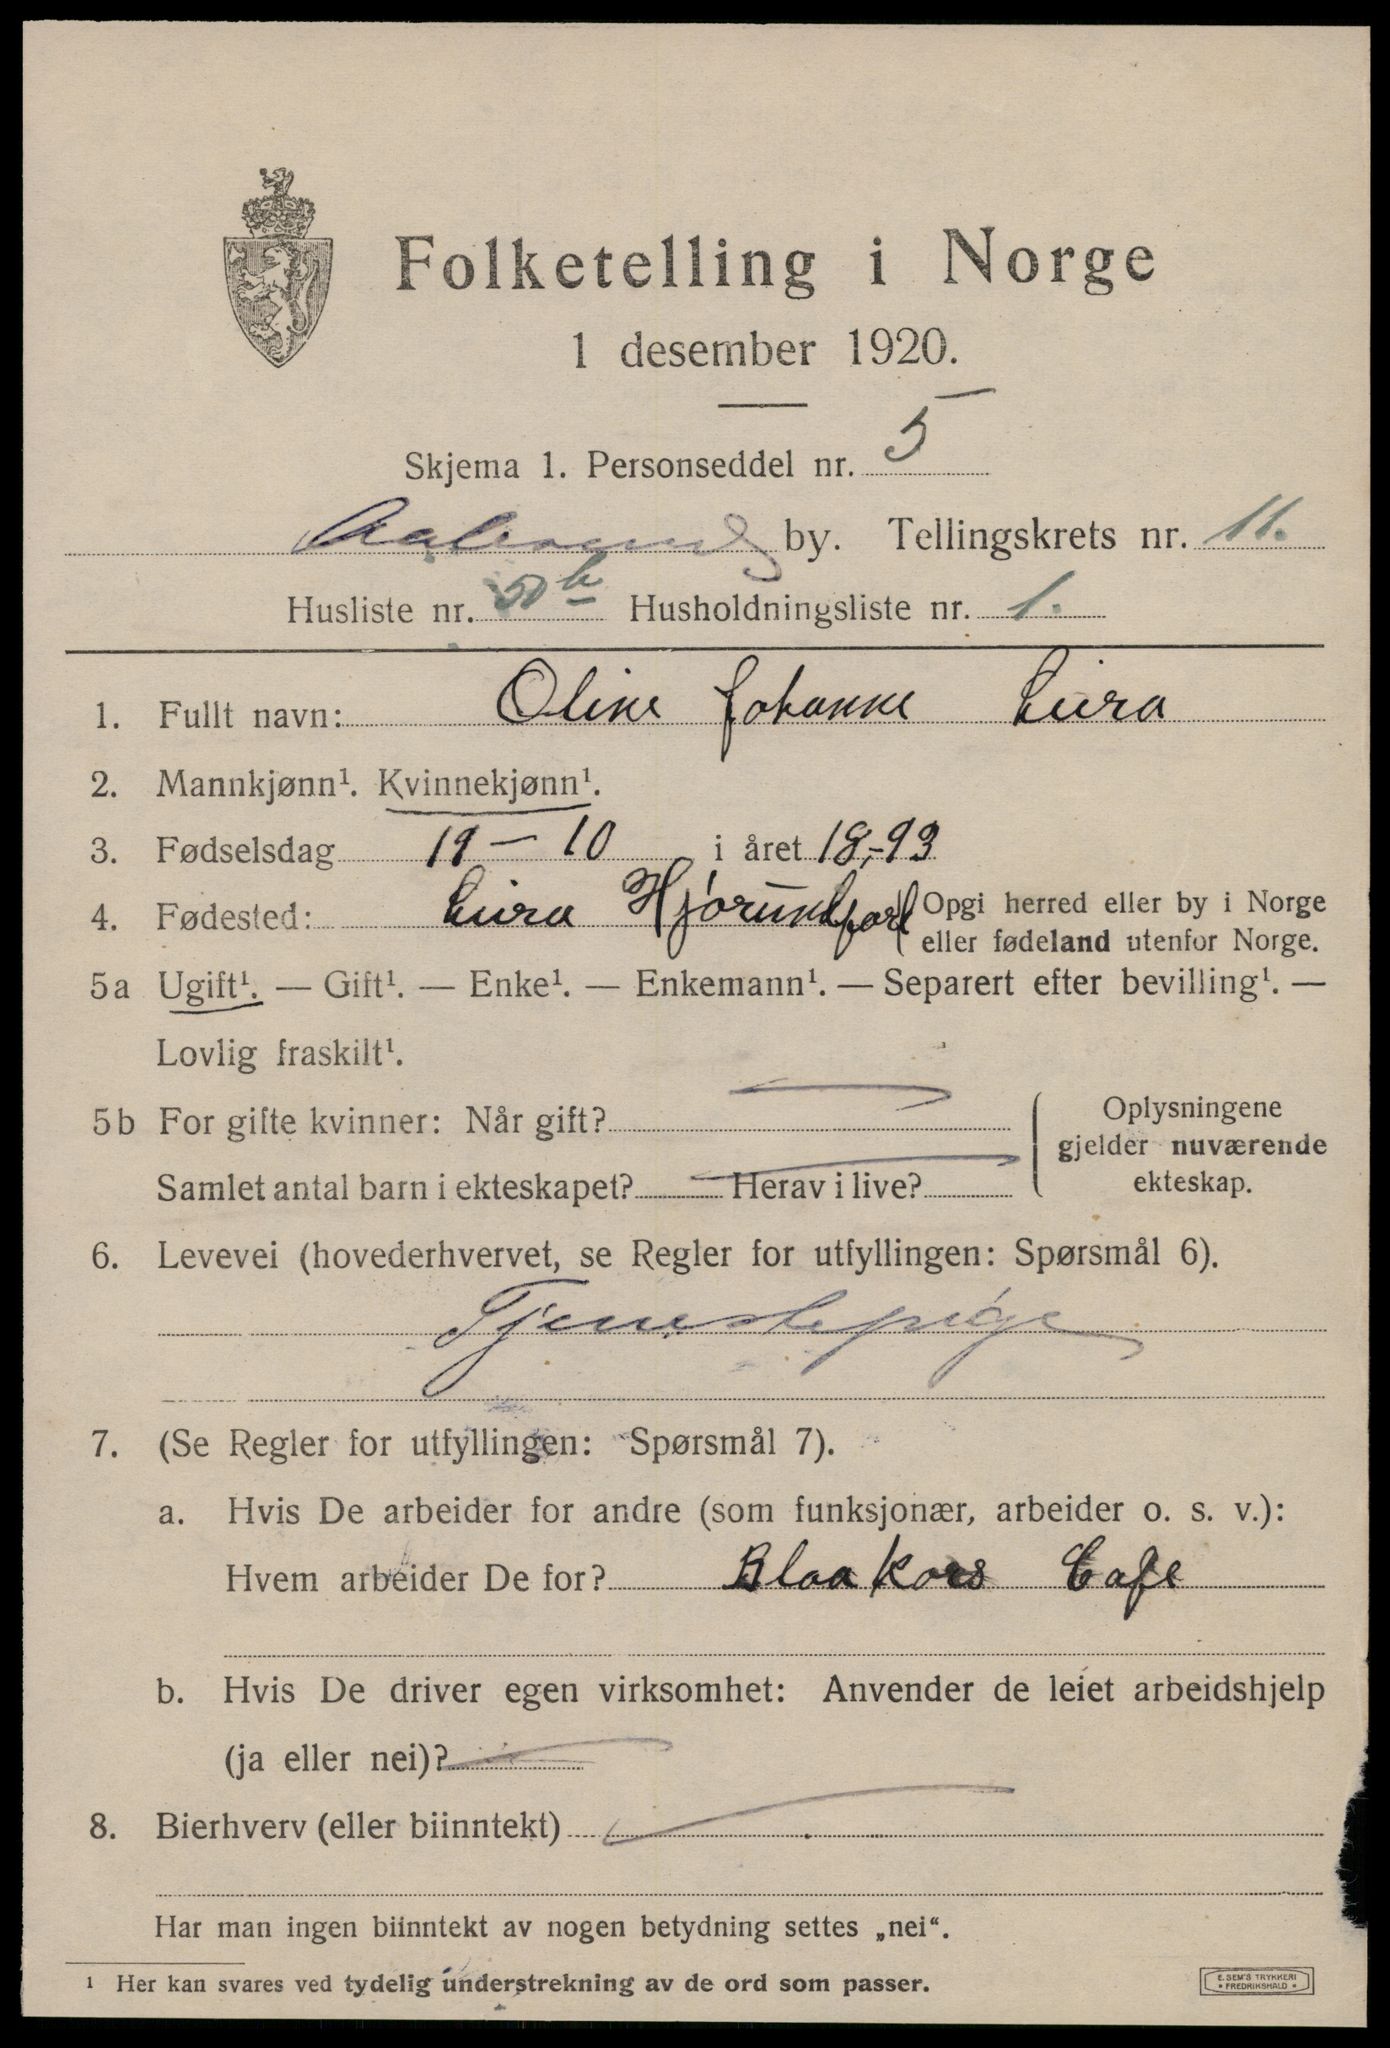 Folketelling i Norge
1 desember 1920.
Skjema 1. Personseddel nr. 5
Aalesund by. Tellingskrets nr. 11.
Husliste nr. Husholdningsliste nr. 1.
1. Fullt navn: Oline Johanne Leira
2. Mannkjønn¹. Kvinnekjønn¹.
3. Fødselsdag 19 – 10 i året 18,-93
4. Fødested: Leira Hjørundfjord (Opgi herred eller by i Norge
eller fødeland utenfor Norge.
5a Ugift¹. — Gift¹. — Enke¹. — Enkemann¹. — Separert efter bevilling¹. —
Lovlig fraskilt¹.
5b For gifte kvinner: Når gift?
Samlet antal barn i ekteskapet? Herav i live?
Oplysningene
gjelder nuværende
ekteskap.
6. Levevei (hovederhvervet, se Regler for utfyllingen: Spørsmål 6).
Tjenestepige
7. (Se Regler for utfyllingen: Spørsmål 7).
a. Hvis De arbeider for andre (som funksjonær, arbeider o. s. v.):
Hvem arbeider De for? Blaa Kors Cafe
b. Hvis De driver egen virksomhet: Anvender de leiet arbeidshjelp
(ja eller nei)?
8. Bierhverv (eller biinntekt)
Har man ingen biinntekt av nogen betydning settes „nei“.
¹ Her kan svares ved tydelig understrekning av de ord som passer.
E. SEM'S TRYKKERI
• FREDRIKSHALD •